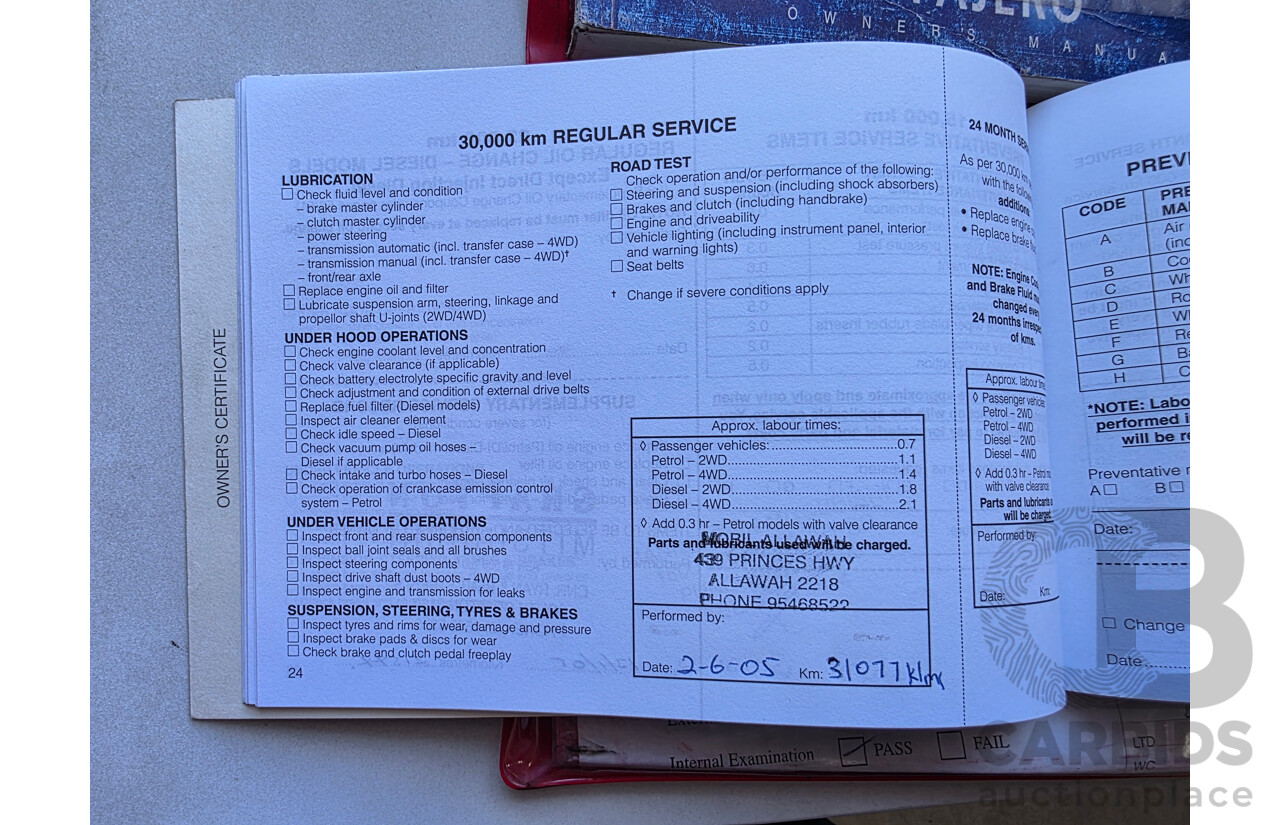 PAJERO
OWNER'S MANUA
OWNER'S CERTIFICATE
30,000 km REGULAR SERVICE
LUBRICATION
Check fluid level and condition
– brake master cylinder
– clutch master cylinder
– power steering
– transmission automatic (incl. transfer case – 4WD)
– transmission manual (incl. transfer case – 4WD)†
– front/rear axle
Replace engine oil and filter
Lubricate suspension arm, steering, linkage and
propellor shaft U-joints (2WD/4WD)
UNDER HOOD OPERATIONS
Check engine coolant level and concentration
Check valve clearance (if applicable)
Check battery electrolyte specific gravity and level
Check adjustment and condition of external drive belts
Replace fuel filter (Diesel models)
Inspect air cleaner element
Check idle speed – Diesel
Check vacuum pump oil hoses –
Diesel if applicable
Check intake and turbo hoses – Diesel
Check operation of crankcase emission control
system – Petrol
UNDER VEHICLE OPERATIONS
Inspect front and rear suspension components
Inspect ball joint seals and all brushes
Inspect steering components
Inspect drive shaft dust boots – 4WD
Inspect engine and transmission for leaks
SUSPENSION, STEERING, TYRES & BRAKES
Inspect tyres and rims for wear, damage and pressure
Inspect brake pads & discs for wear
Check brake and clutch pedal freeplay
24
ROAD TEST
Check operation and/or performance of the following:
Steering and suspension (including shock absorbers)
Brakes and clutch (including handbrake)
Engine and driveability
Vehicle lighting (including instrument panel, interior
and warning lights)
Seat belts
† Change if severe conditions apply
Approx. labour times:
◊ Passenger vehicles: 0.7
Petrol – 2WD 1.1
Petrol – 4WD 1.4
Diesel – 2WD 1.8
Diesel – 4WD 2.1
◊ Add 0.3 hr – Petrol models with valve clearance
Parts and lubricants used will be charged.
MOBIL ALLAWAH
439 PRINCES HWY
ALLAWAH 2218
PHONE 95468522
Performed by:
Date: 2-6-05 Km: 31077klms
24 MONTH SER
As per 30,000 km
with the follo
addition
• Replace engine
• Replace brake
NOTE: Engine Co
and Brake Fluid m
changed ever
24 months irrespe
of kms.
Approx. labour time
◊ Passenger vehicle
Petrol – 2WD
Petrol – 4WD
Diesel – 2WD
Diesel – 4WD
◊ Add 0.3 hr – Petrol mo
with valve clearance
Parts and lubricants
will be charged
Performed by:
Date: Km:
PREV
CODE PRE
MA
A Air
(inc
B Co
C Wh
D Ro
E W
F Re
G Ba
H C
*NOTE: Labo
performed i
will be re
Preventative
A B
Date:
Change
Date
Internal Examination PASS FAIL
LTD
WC
CARBIDS
auctionplace